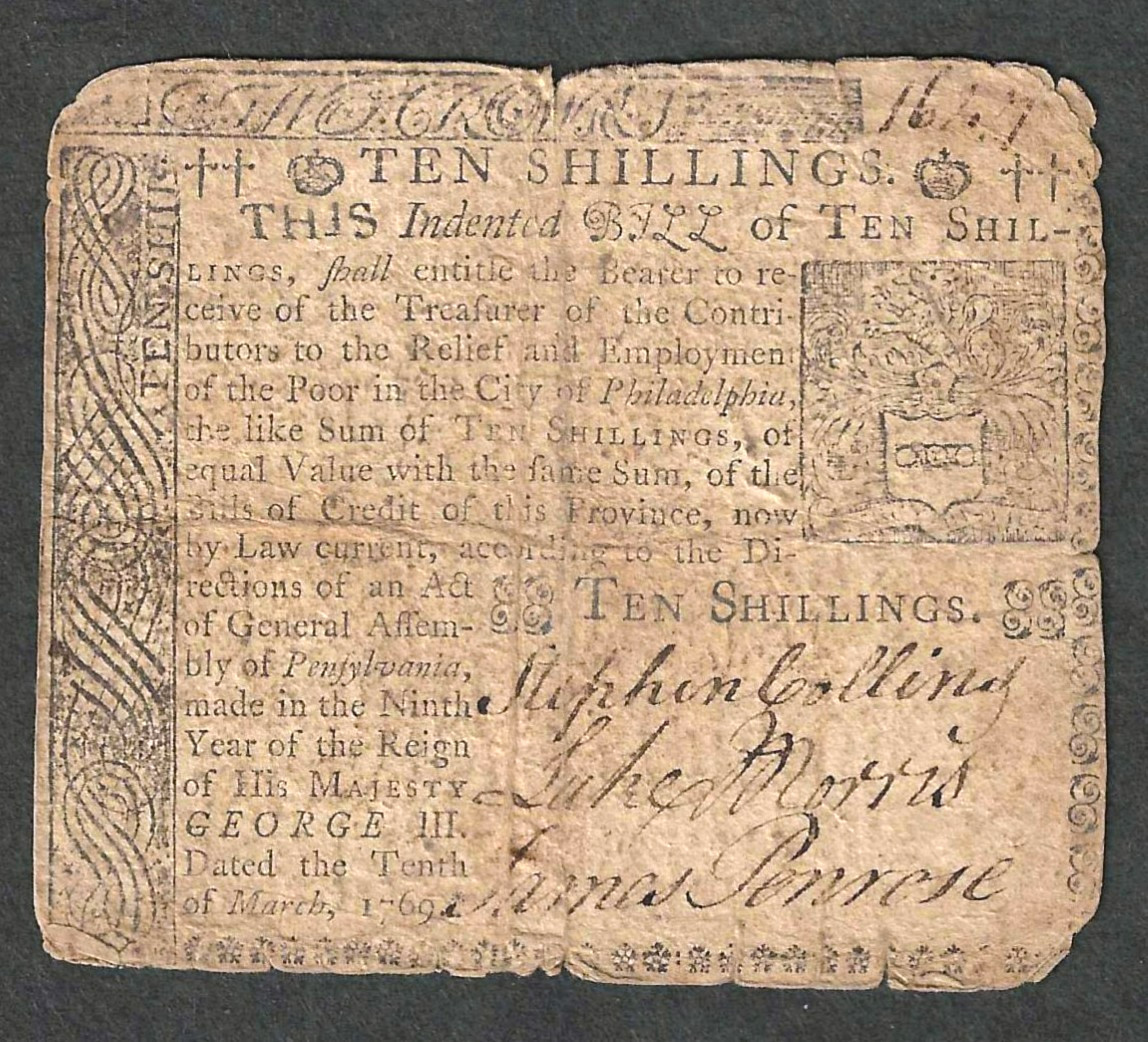 TWO CROWNS
TEN SHILLINGS.
THIS Indented BILL of TEN SHIL-
LINGS, ſhall entitle the Bearer to re-
ceive of the Treaſurer of the Contri-
butors to the Relief and Employment
of the Poor in the City of Philadelphia,
the like Sum of TEN SHILLINGS, of
equal Value with the ſame Sum, of the
Bills of Credit of this Province, now
by Law current, according to the Di-
rections of an Act
of General Aſſem-
bly of Penſylvania,
made in the Ninth
Year of the Reign
of His MAJESTY
GEORGE III.
Dated the Tenth
of March, 1769.
TEN SHILLINGS.
Stephen Collins
Luke Morris
James Penrose
TEN SHILL